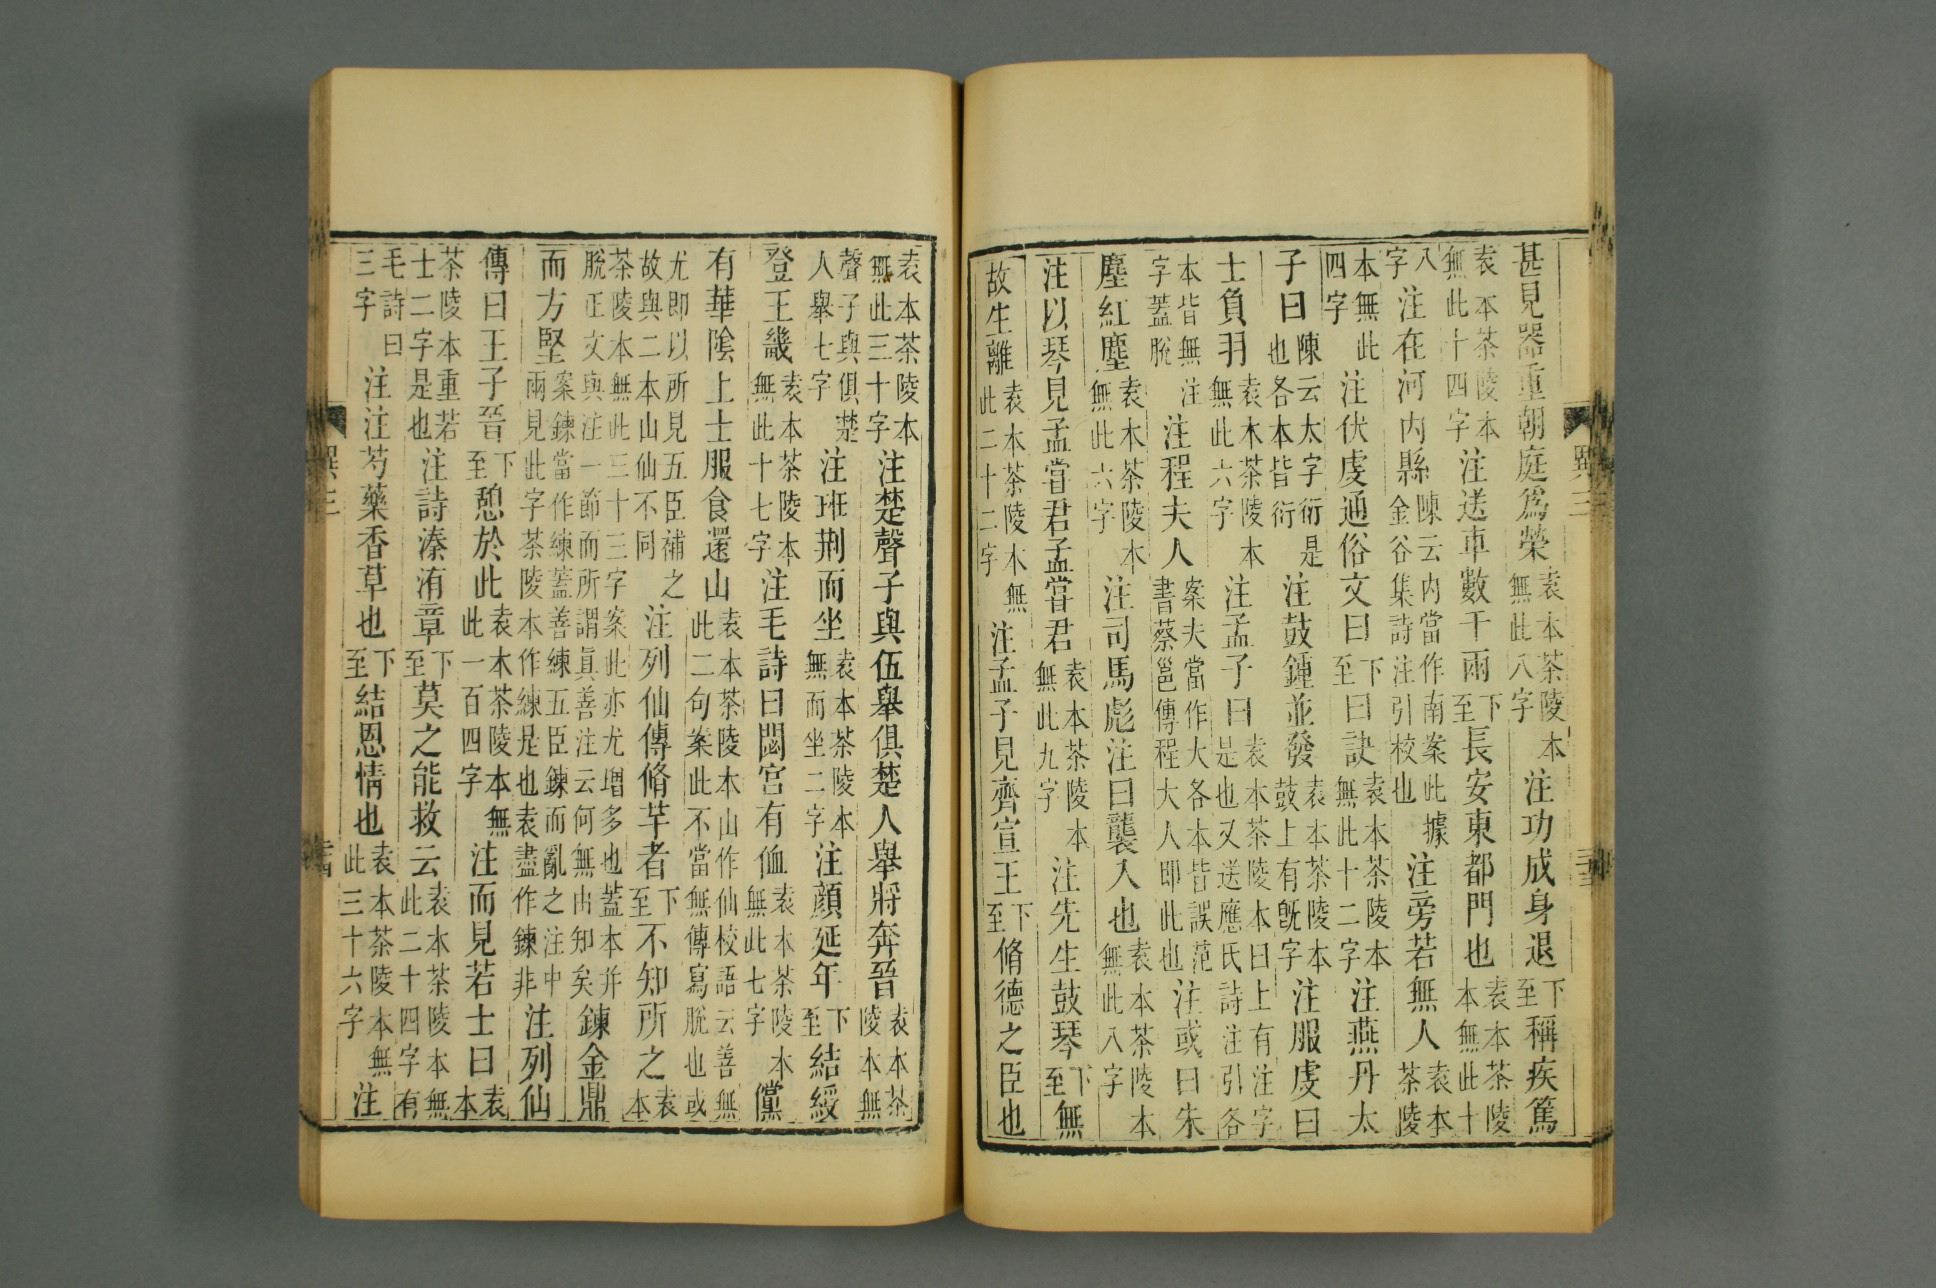 甚見器重朝庭爲榮袁本茶陵本無此八字注功成身退下至稱疾篤
袁本茶陵本無此十四字注送車數千兩下至長安東都門也袁本茶陵本無此十
八字注在河内縣陳云内當作南案此據金谷集詩注引校也注旁若無人袁本茶陵
本無此四字注伏虔通俗文曰下至曰訣袁本茶陵本無此十二字注燕丹太
子曰陳云太字衍是也各本皆衍注鼓鍾並發袁本茶陵本鼓上有既字注服虔曰
士負羽袁本茶陵本無此六字注孟子曰袁本茶陵本曰上有注字是也又送應氏詩注引各
本皆無注字蓋脫注程夫人案夫當作大各本皆誤范書蔡邕傳程大人即此也注或曰朱
塵紅塵袁本茶陵本無此六字注司馬彪注曰襲入也袁本茶陵本無此八字
注以琴見孟嘗君孟嘗君袁本茶陵本無此九字注先生鼓琴下至無
故生離袁本茶陵本無此二十二字注孟子見齊宣王下至脩德之臣也
袁本茶陵本無此三十字注楚聲子與伍舉俱楚人舉將奔晉袁本茶陵本無
聲子與俱楚人舉七字注班荆而坐袁本茶陵本無而坐二字注顔延年下至結綬
登王畿袁本茶陵本無此十七字注毛詩曰閟宮有侐袁本茶陵本無此七字儻
有華陰上士服食還山袁本茶陵本山作仙校語云善無此二句案此不當無傳寫脫也或
尤即以所見五臣補之故與二本山仙不同注列仙傳脩芊者下至不知所之袁本
茶陵本無此三十三字案此亦尤增多也蓋本并脫正文與注一節而所謂眞善注云何無由知矣鍊金鼎
而方堅案鍊當作練蓋善練五臣鍊而亂之注中兩見此字茶陵本作練是也袁盡作鍊非注列仙
傳曰王子晉下至憩於此袁本茶陵本無此一百四字注而見若士曰袁本
茶陵本重若士二字是也注詩溱洧章下至莫之能救云袁本茶陵本無此二十四字有
毛詩曰三字注注芍藥香草也下至結恩情也袁本茶陵本無此三十六字注